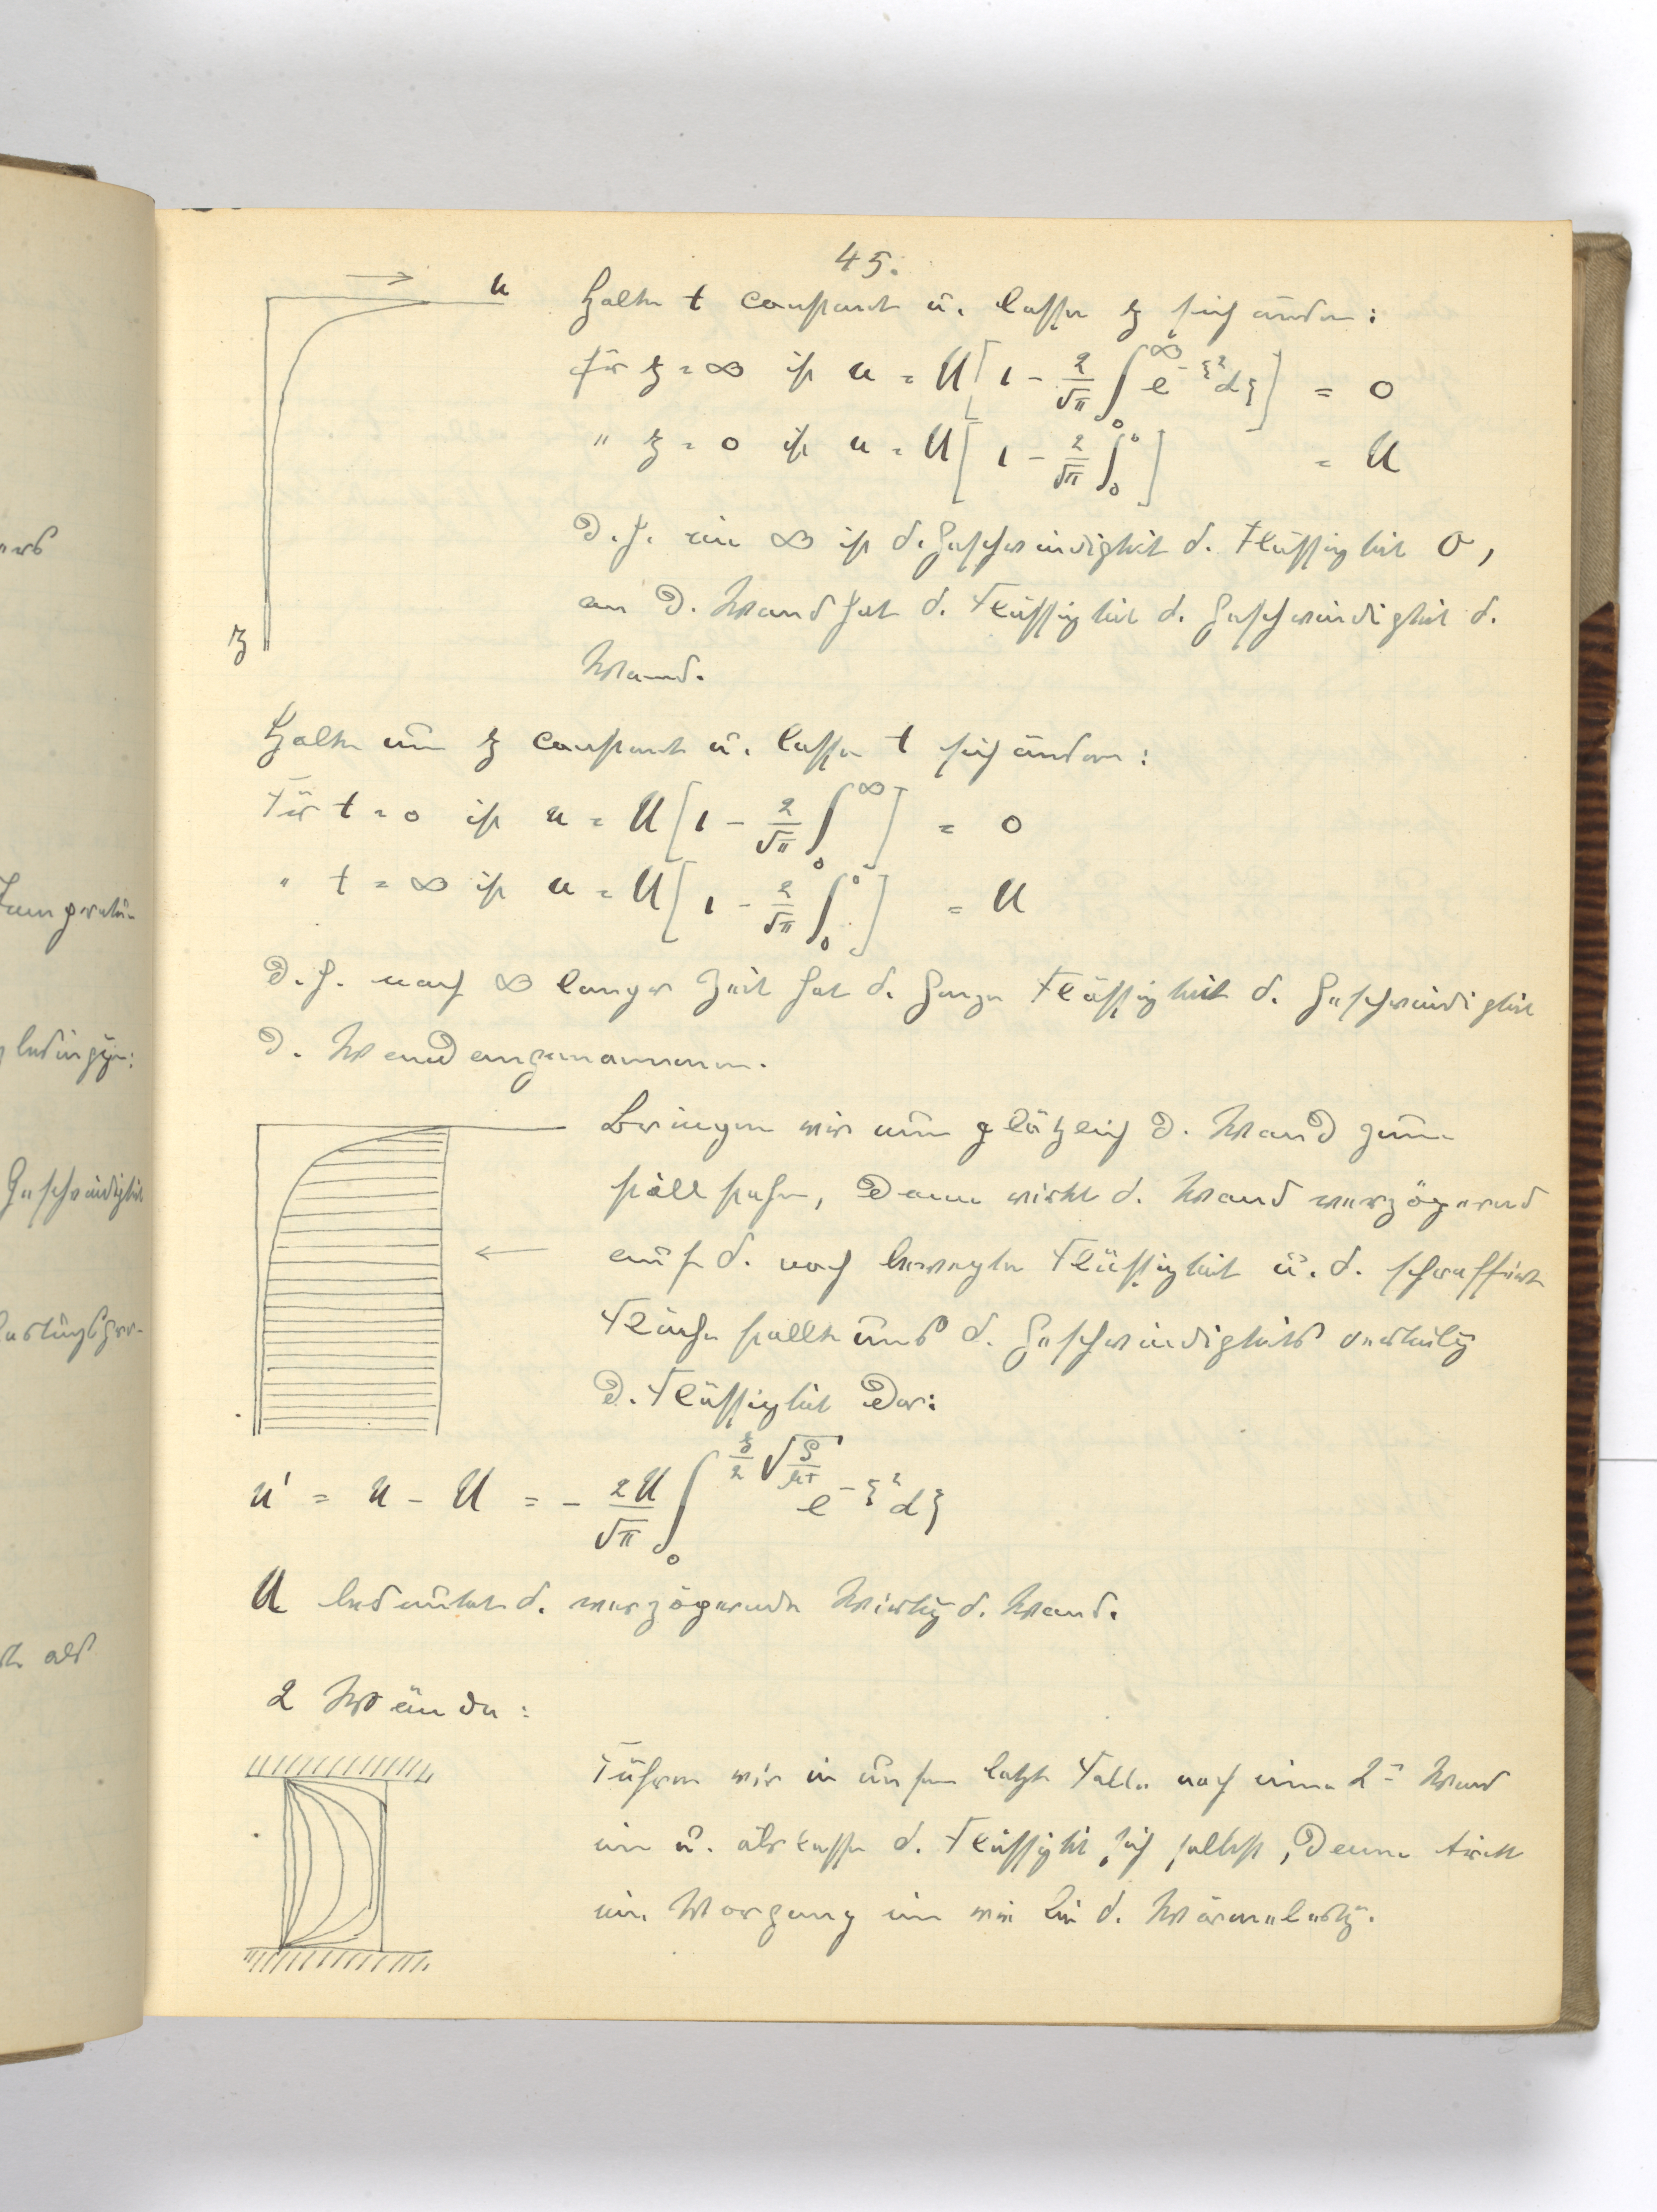 45.
u
z
Halte t constant u. lasse z sich ändern:
für z = ∞ ist u = U[1 - 2/√π ∫₀^∞ e^{-ξ²}dξ] = 0
" z = 0 ist u = U[1 - 2/√π ∫₀^0] = U
D.h. im ∞ ist d. Geschwindigkeit d. Flüssigkeit 0,
an d. Wand hat d. Flüssigkeit d. Geschwindigkeit d.
Wand.
Halte nun z constant u. lasse t sich ändern:
Für t = 0 ist u = U[1 - 2/√π ∫₀^∞] = 0
" t = ∞ ist u = U[1 - 2/√π ∫₀^0] = U
D.h. nach ∞ langer Zeit hat d. ganze Flüssigkeit d. Geschwindigkeit
d. Wand angenommen.
Bringen wir nun plötzlich d. Wand zum
still stehen, dann wirkt d. Wand verzögernd
auf d. noch bewegte Flüssigkeit u. d. schraffirte
Fläche stellt uns d. Geschwindigkeits verteilg
d. Flüssigkeit dar:
u' = u - U = - 2U/√π ∫₀^{z/2 √(ρ/μt)} e^{-ξ²}dξ
U bedeutet d. verzögernde Wirkg d. Wand.
2 Wände:
Führen wir in unsern letzten Falle noch eine 2te Wand
ein u. überlasse d. Flüssigkt sich selbst, dann tritt
ein Vorgang ein wie bei d. Wärmeleitg.
ers
Temperatur
bedingg:
Geschwindigkeit
als